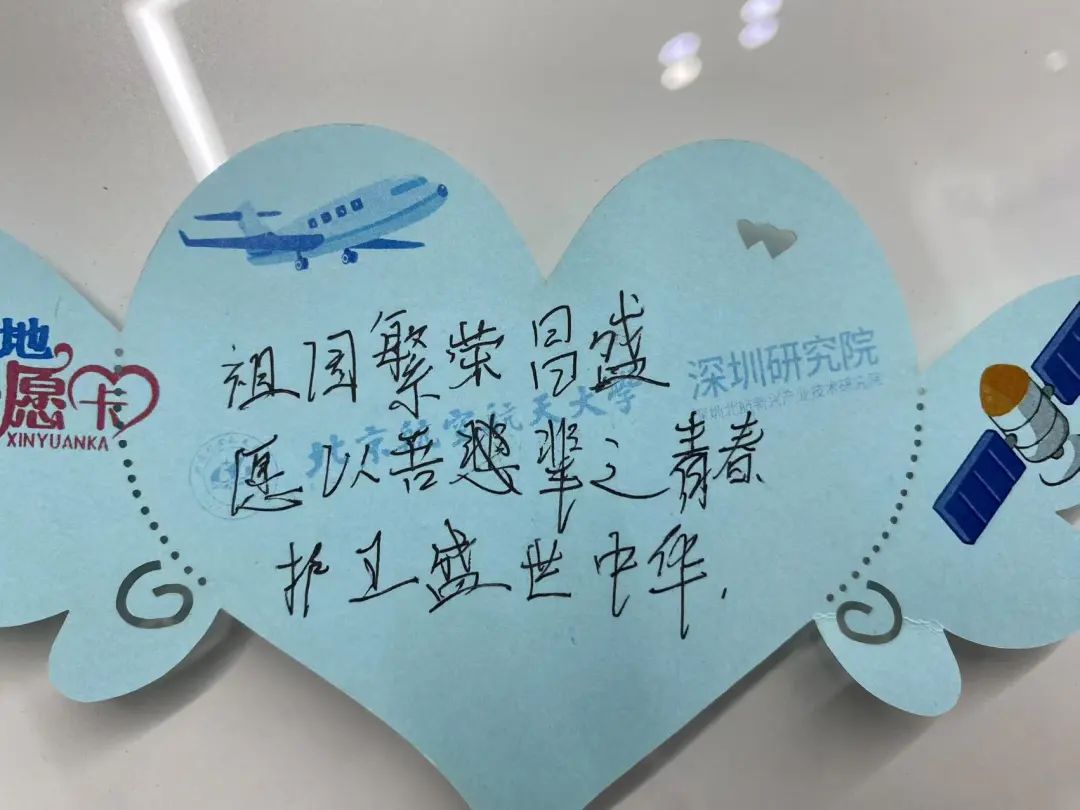 地
愿卡
XINYUANKA
祖国繁荣昌盛
深圳研究院
深圳北航新兴产业技术研究院
北京航空航天大學
愿以吾辈之青春
护卫盛世中华.